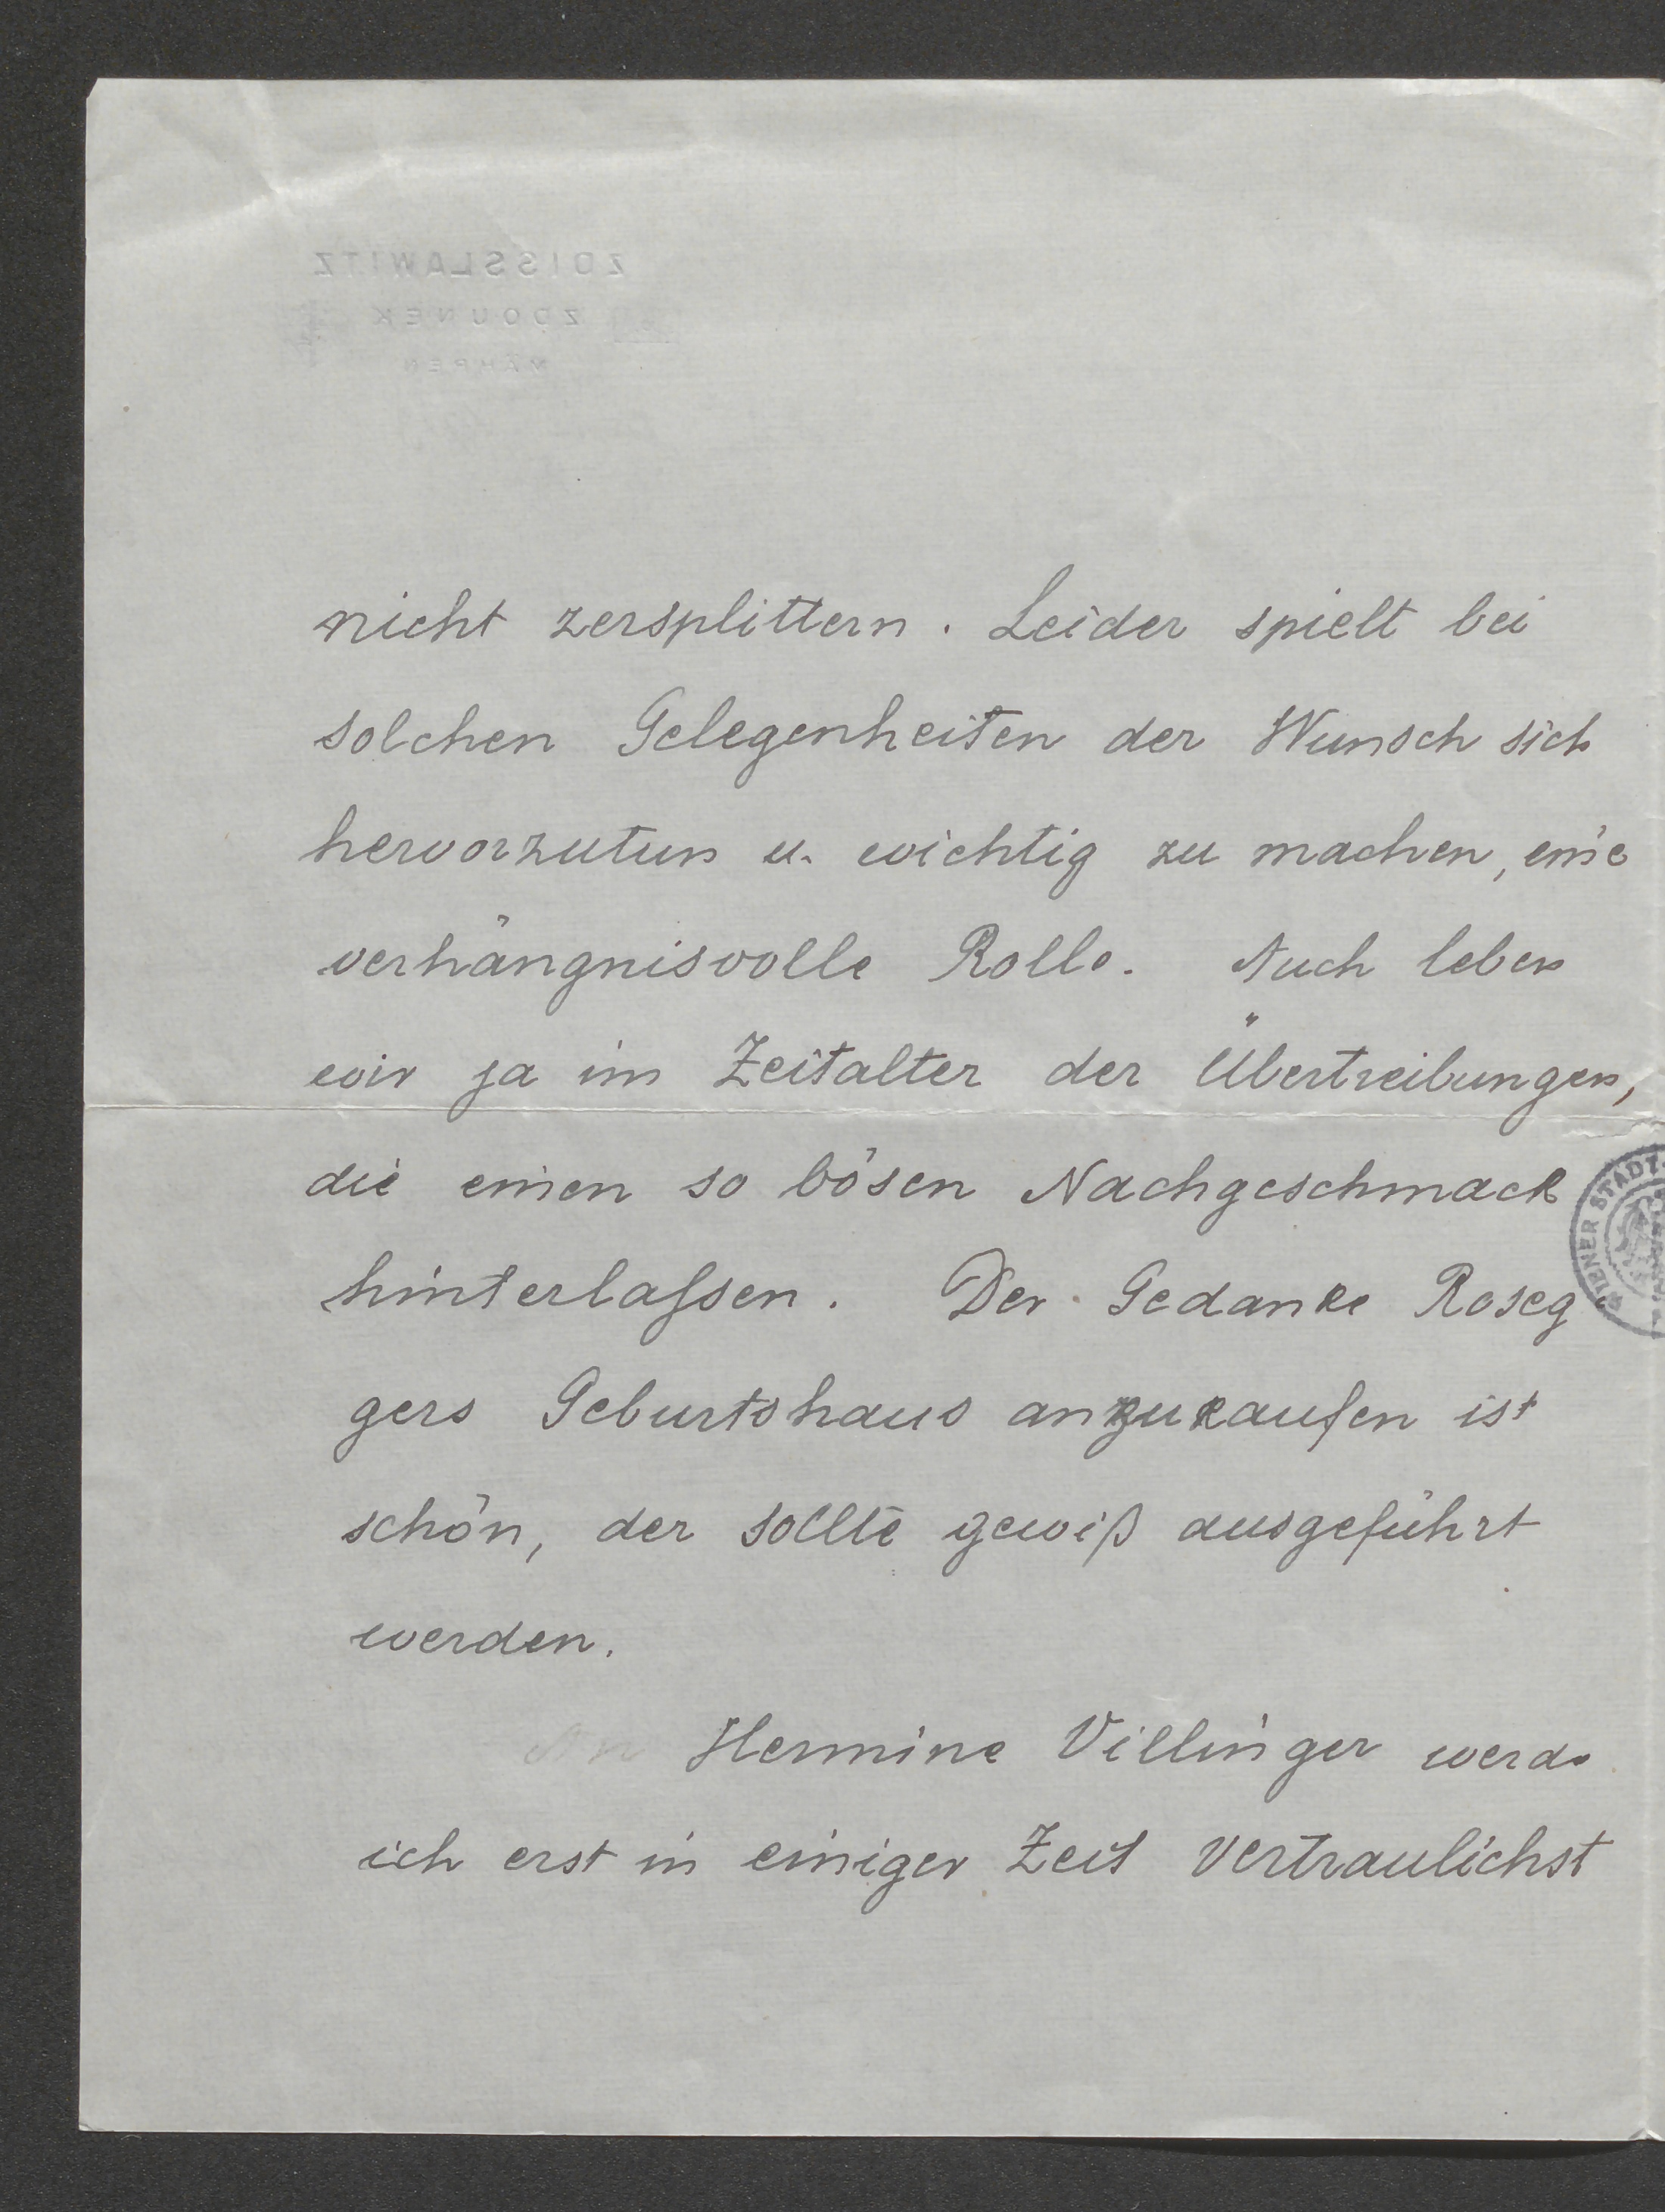 ZDISSLAWITZ
ZDOUNEK
MÄHREN
nicht zersplittern. Leider spielt bei
solchen Gelegenheiten der Wunsch sich
hervorzutun u. wichtig zu machen, eine
verhängnisvolle Rolle. Auch leben
wir ja im Zeitalter der Übertreibungen,
die einen so bösen Nachgeschmack
hinterlaſsen. Der Gedanke Roseg
gers Geburtshaus anzukaufen ist
schön, der sollte gewiß ausgeführt
werden.
An Hermine Villinger werde
ich erst in einiger Zeit vertraulichst
WIENER STADT-